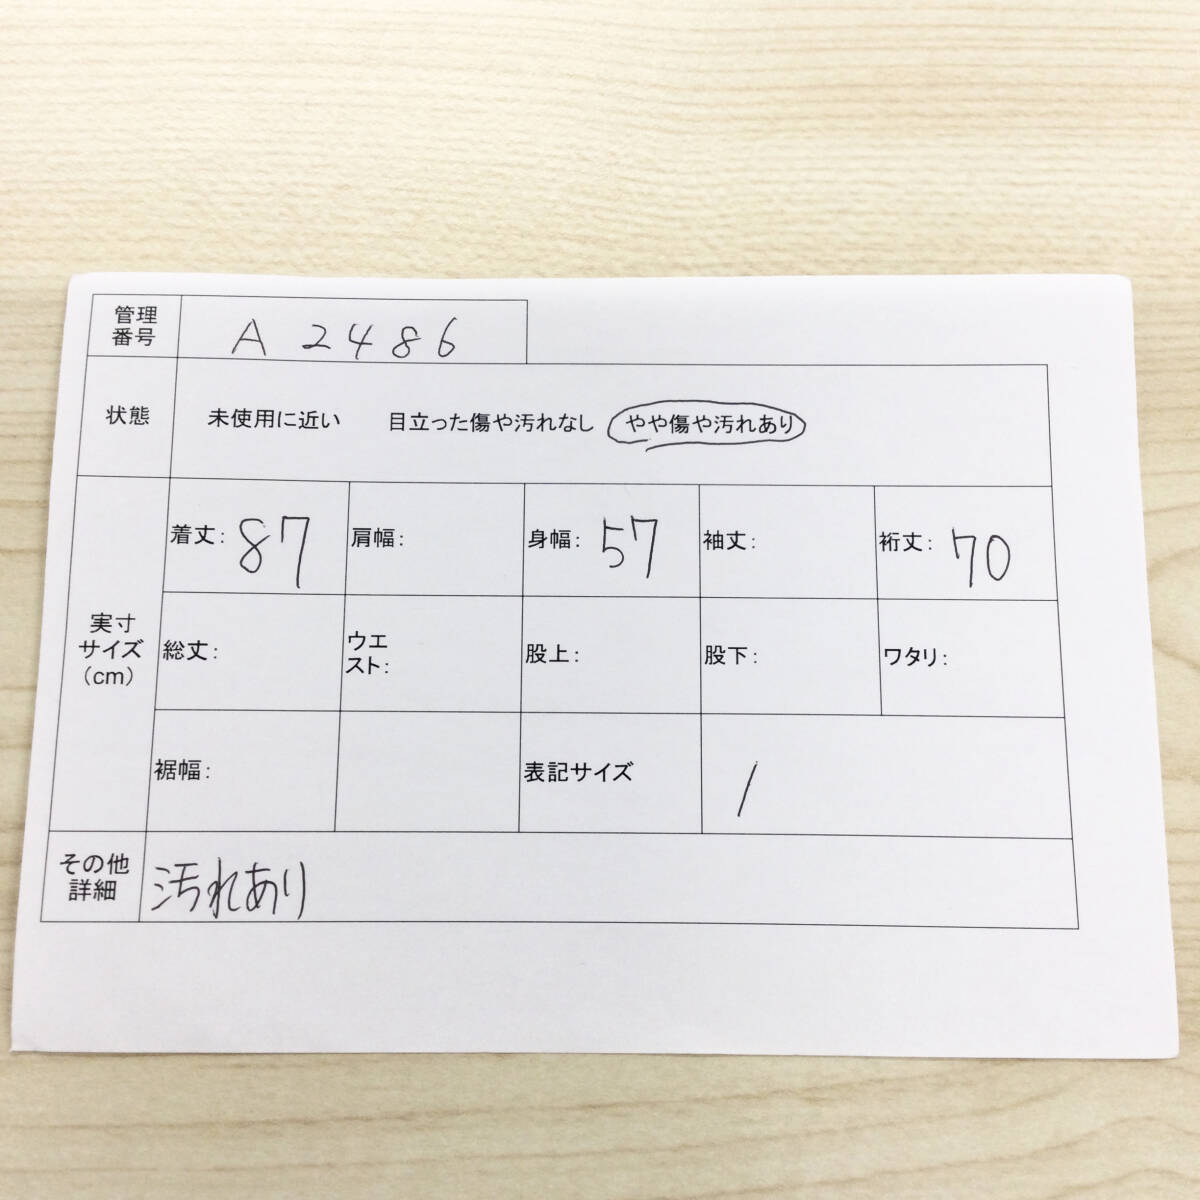 管理
番号
A 2486
状態
未使用に近い 目立った傷や汚れなし やや傷や汚れあり
実寸
サイズ
(cm)
着丈: 87
肩幅:
身幅: 57
袖丈:
裄丈: 70
総丈:
ウエ
スト:
股上:
股下:
ワタリ:
裾幅:
表記サイズ
/
その他
詳細
汚れあり